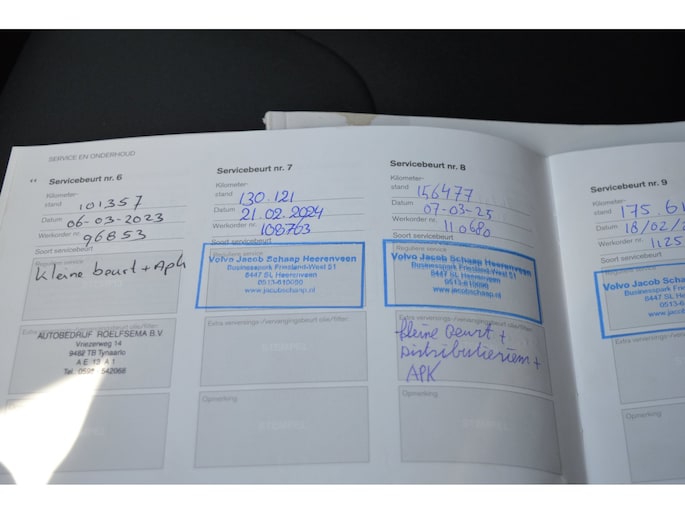 SERVICE EN ONDERHOUD
Servicebeurt nr. 6
Kilometer-
stand 101357
Datum 06-03-2023
Werkorder nr. 96853
Soort servicebeurt
Reguliere service
kleine beurt + Apk
AUTOBEDRIJF ROELFSEMA B.V
Vriezerweg 14
9482 TB Tynaarlo
Tel. 0592 542068
Opmerking
STEMPEL
Servicebeurt nr. 7
Kilometer-
stand 130.121
Datum 21.02.2024
Werkorder nr. 108763
Soort servicebeurt
Reguliere service
Volvo Jacob Schaap Heerenveen
Businesspark Friesland-West 51
8447 SL Heerenveen
0513-610090
www.jacobschaap.nl
Extra verversings-/vervangingsbeurt olie/filter:
STEMPEL
Opmerking
STEMPEL
Servicebeurt nr. 8
Kilometer-
stand 156477
Datum 07-03-25
Werkorder nr. 110680
Soort servicebeurt
Reguliere service
Volvo Jacob Schaap Heerenveen
Businesspark Friesland-West 51
8447 SL Heerenveen
www.jacobschaap.nl
Extra verversings-/vervangingsbeurt olie/filter:
kleine beurt +
Distributieriem +
APK
Opmerking
STEMPEL
Servicebeurt nr. 9
Kilometer-
stand 175.61
Datum 18/02/
Werkorder nr. 1125
Soort servicebeurt
Volvo Jacob Schaap
Businesspark
8447 SL Heer
0513-6
www.jacob
Extra verversings-/vervang
Opmerking